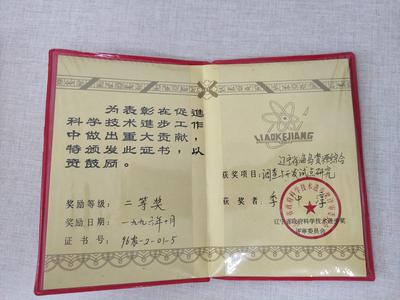 为表彰在促進
科学技术進步工作
中做出重大贡献,
特颁发此证书,以
资鼓励。
奖励等级：二等奖
奖励日期：一九九六年 月
证书号：96农-2-01-5
LIAOKEJIANG
辽宁省海岛资源综合
获奖项目：调查与开发试点研究
获奖者：李
辽宁省政府科学技术進步奖
评审委员会